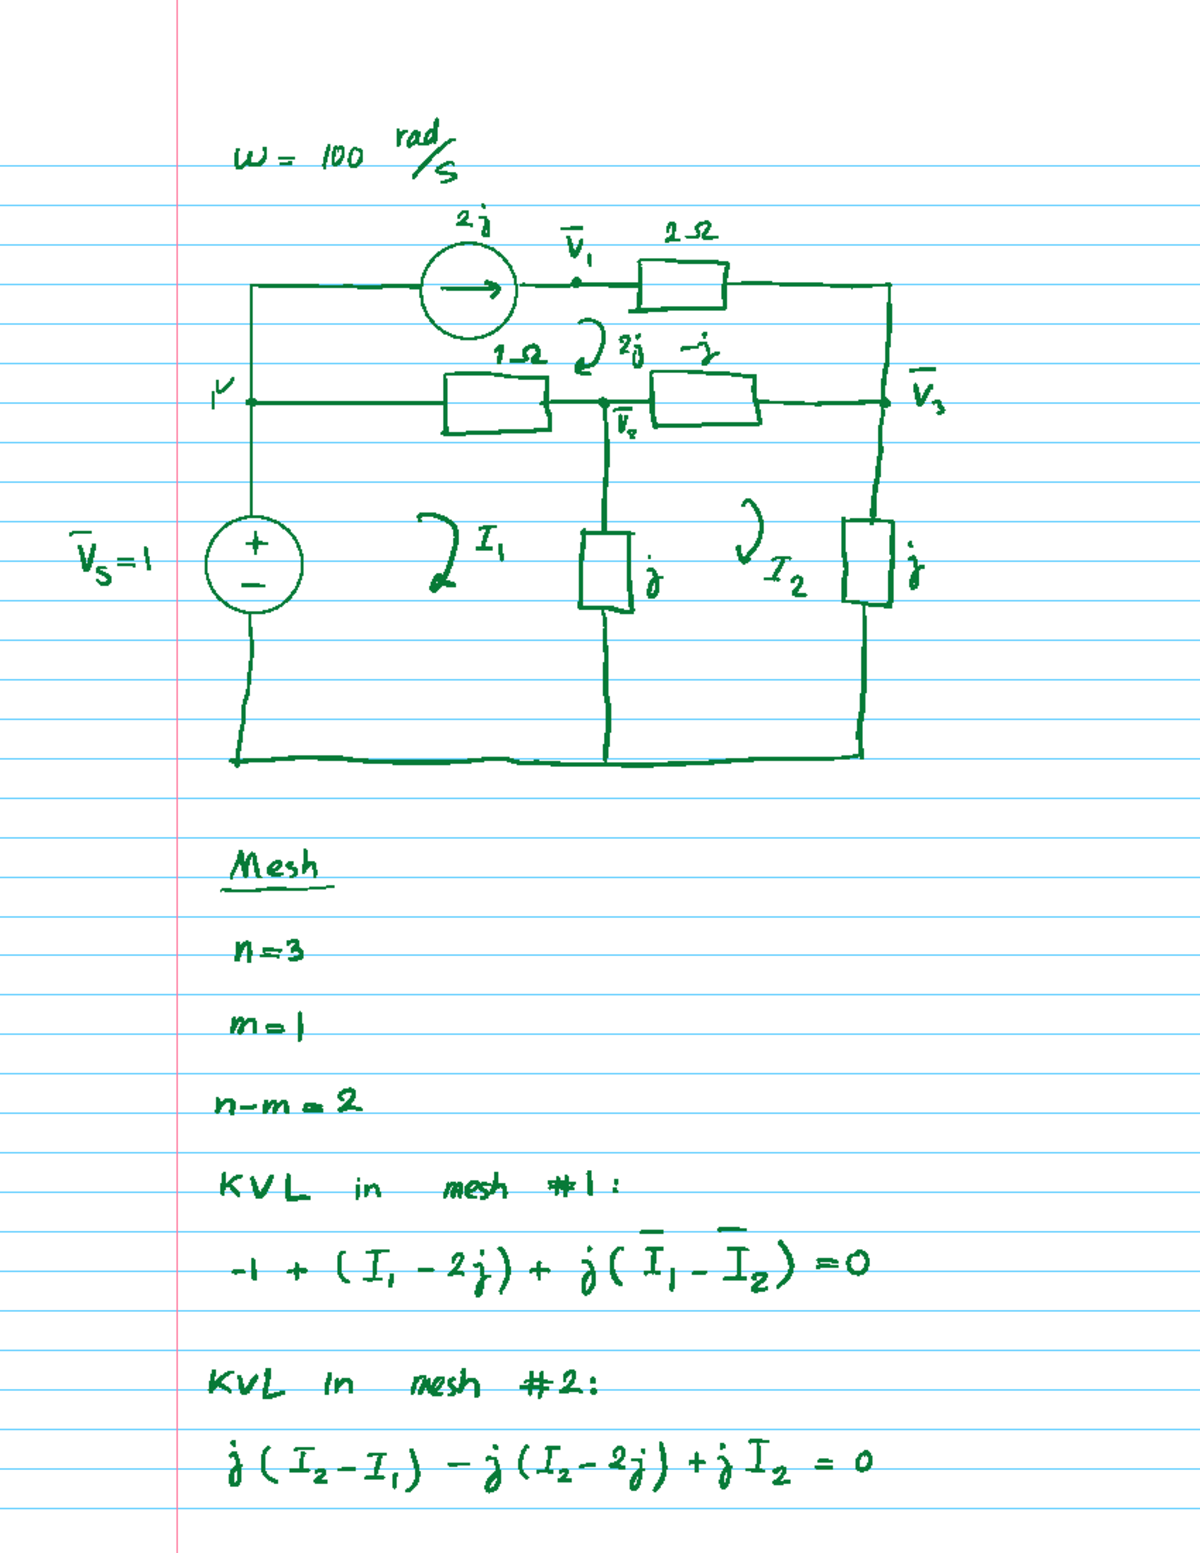 ω = 100 rad/s
2j
V̅₁
2Ω
1Ω
2j
-j
1V
V̅₂
V̅₃
V̅s = 1
+
-
I₁
j
I₂
j
Mesh
n=3
m=1
n-m=2
KVL in mesh #1:
-1 + (I₁ - 2j) + j(I̅₁ - I̅₂) = 0
KVL in mesh #2:
j(I₂ - I₁) - j(I₂ - 2j) + jI₂ = 0